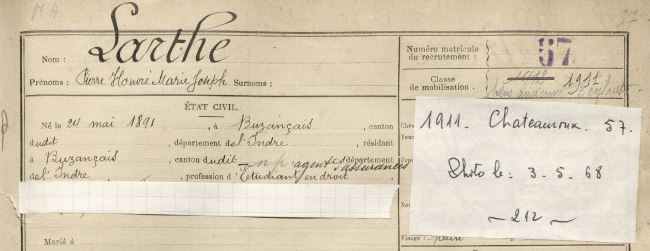 Nom : Larthe
Prénoms : Pierre Honoré Marie Joseph Surnoms :
Numéro matricule du recrutement : 57
Classe de mobilisation : 1911
ÉTAT CIVIL.
Né le 24 mai 1891, à Buzançais, canton
dudit, département de l'Indre, résidant
à Buzançais canton dudit département
de l'Indre, profession d'Étudiant en droit
agent d'assurances
Marié à
1911. Chateauroux. 57.
Photo le : 3-5-68
-212-
Visage